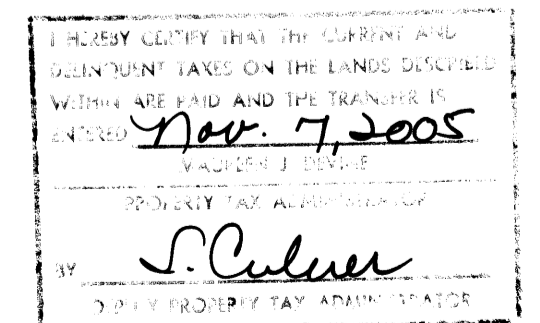 I HEREBY CERTIFY THAT THE CURRENT AND
DELINQUENT TAXES ON THE LANDS DESCRIBED
WITHIN ARE PAID AND THE TRANSFER IS
ENTERED Nov. 7, 2005
MAUREEN J. DEVINE
PROPERTY TAX ADMINISTRATOR
BY S. Culver
DEPUTY PROPERTY TAX ADMINISTRATOR